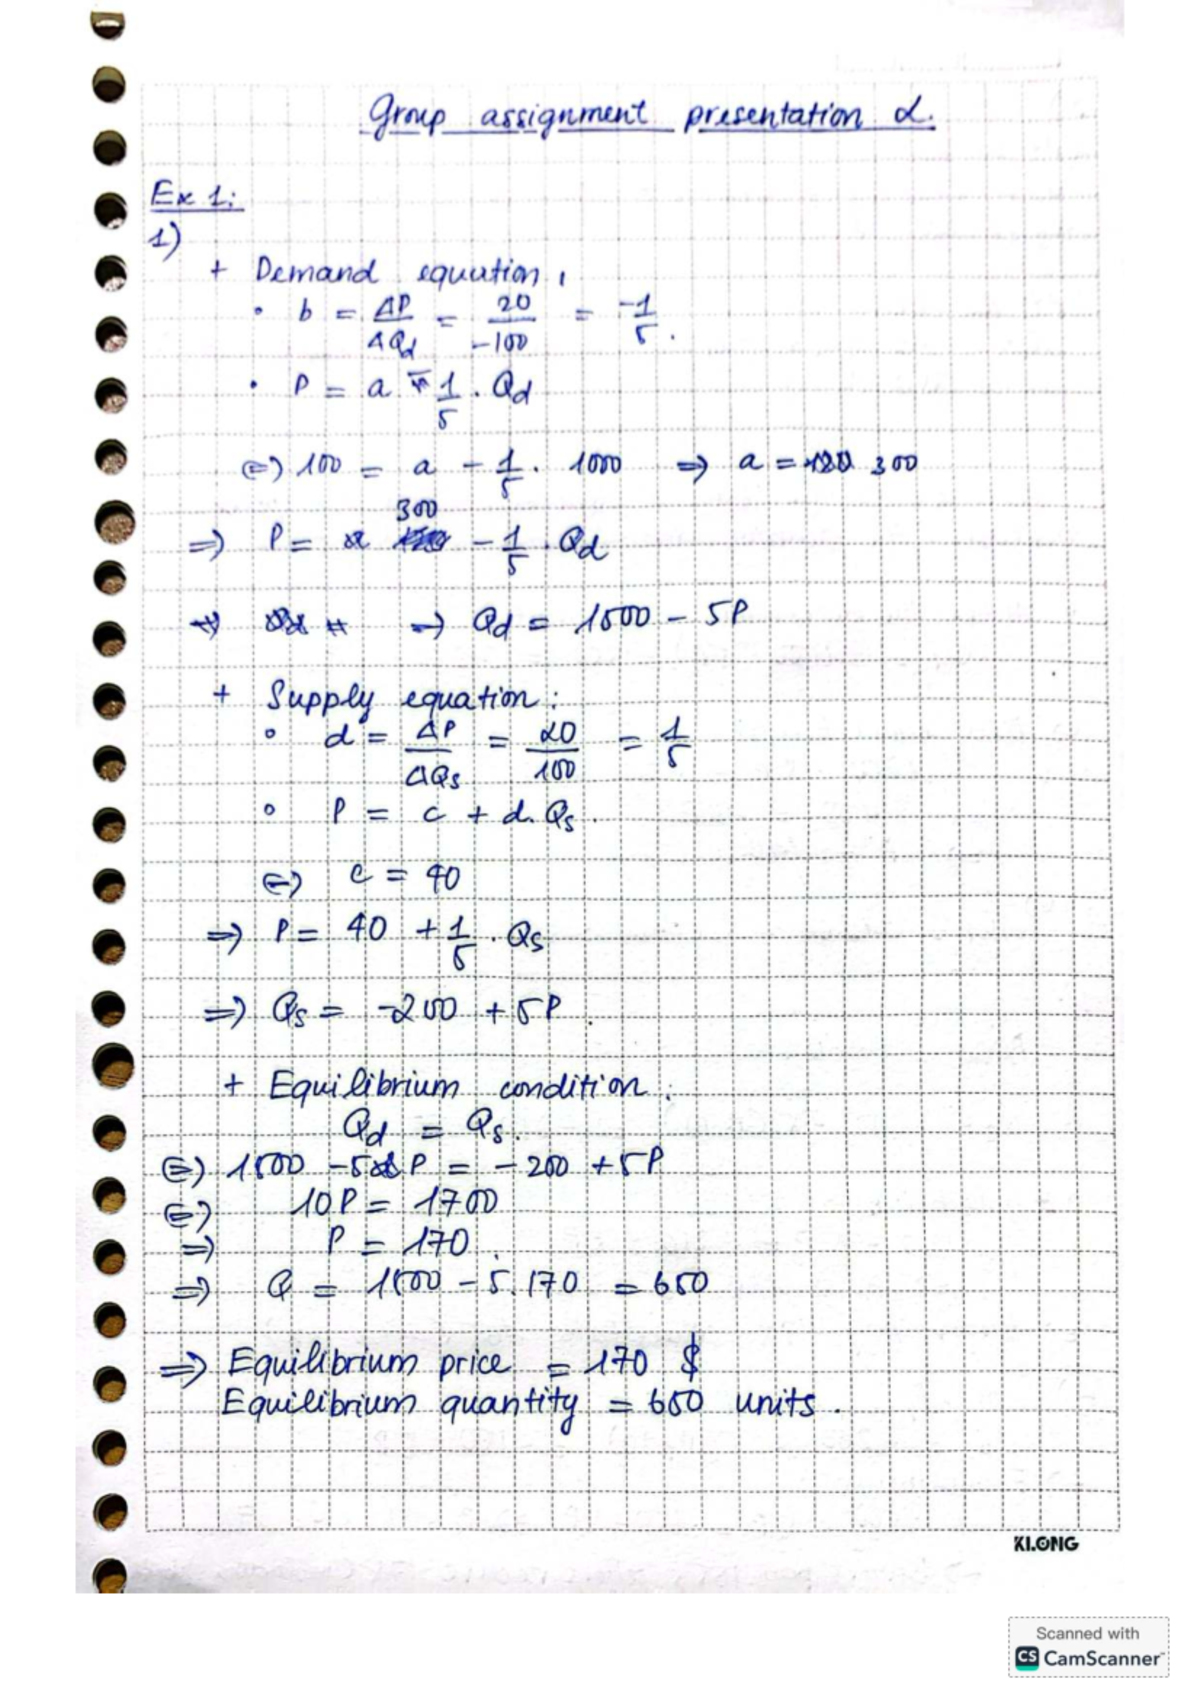 Group assignment presentation 2.
Ex 1:
1)
+ Demand equation:
• b = ΔP/ΔQd = 20/-100 = -1/5.
• P = a - 1/5 . Qd
⇔ 100 = a - 1/5 . 1000 ⇒ a = 300
⇒ P = 300 - 1/5 . Qd
⇒ Qd = 1500 - 5P
+ Supply equation:
• d = ΔP/ΔQs = 20/100 = 1/5
• P = c + d. Qs
⇔ c = 40
⇒ P = 40 + 1/5 . Qs
⇒ Qs = -200 + 5P.
+ Equilibrium condition:
Qd = Qs.
⇔ 1500 - 5 P = - 200 + 5P
⇔ 10P = 1700
⇒ P = 170.
⇒ Q = 1500 - 5.170 = 650
⇒ Equilibrium price = 170 $
Equilibrium quantity = 650 units.
KLONG
Scanned with
CS CamScanner